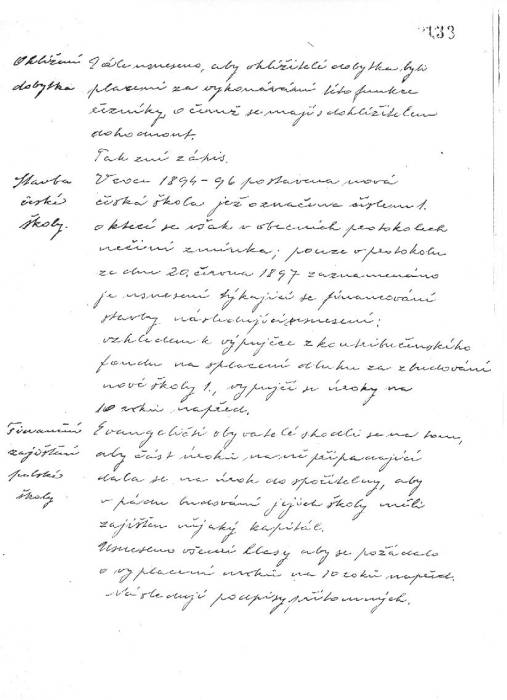 133
Ohlížení
dobytka
Dále usneseno, aby ohližitelé dobytka byli
placeni za vykonávání této funkce
řezníky, o čemž se mají s dohližitelem
dohodnout.
Tak zní zápis.
Stavba
české
školy.
V roce 1894-96 postavena nová
česká škola jež označena číslem 1.
o kteréž se však v obecních protokolech
nečiní zmínka; pouze v protokolu
ze dne 20. června 1897 zaznamenáno
je usnesení týkající se financování
stavby následující usnesení:
vzhledem k výpujčce z kontribučenského
fondu na splacení dluhu za zbudování
nové školy 1., vypujčí se úroky na
10 roků napřed.
Finanční
zajištění
polské
školy
Evangeličtí obyvatelé shodli se na tom,
aby část úroků na ně připadající
dala se na úrok do spořitelny, aby
v pádu budování jejich školy měli
zajištěn nějaký kapitál.
Usneseno všemi hlasy aby se požádalo
o vyplacení uroků na 10 roků napřed.
Následují podpisy přítomných.